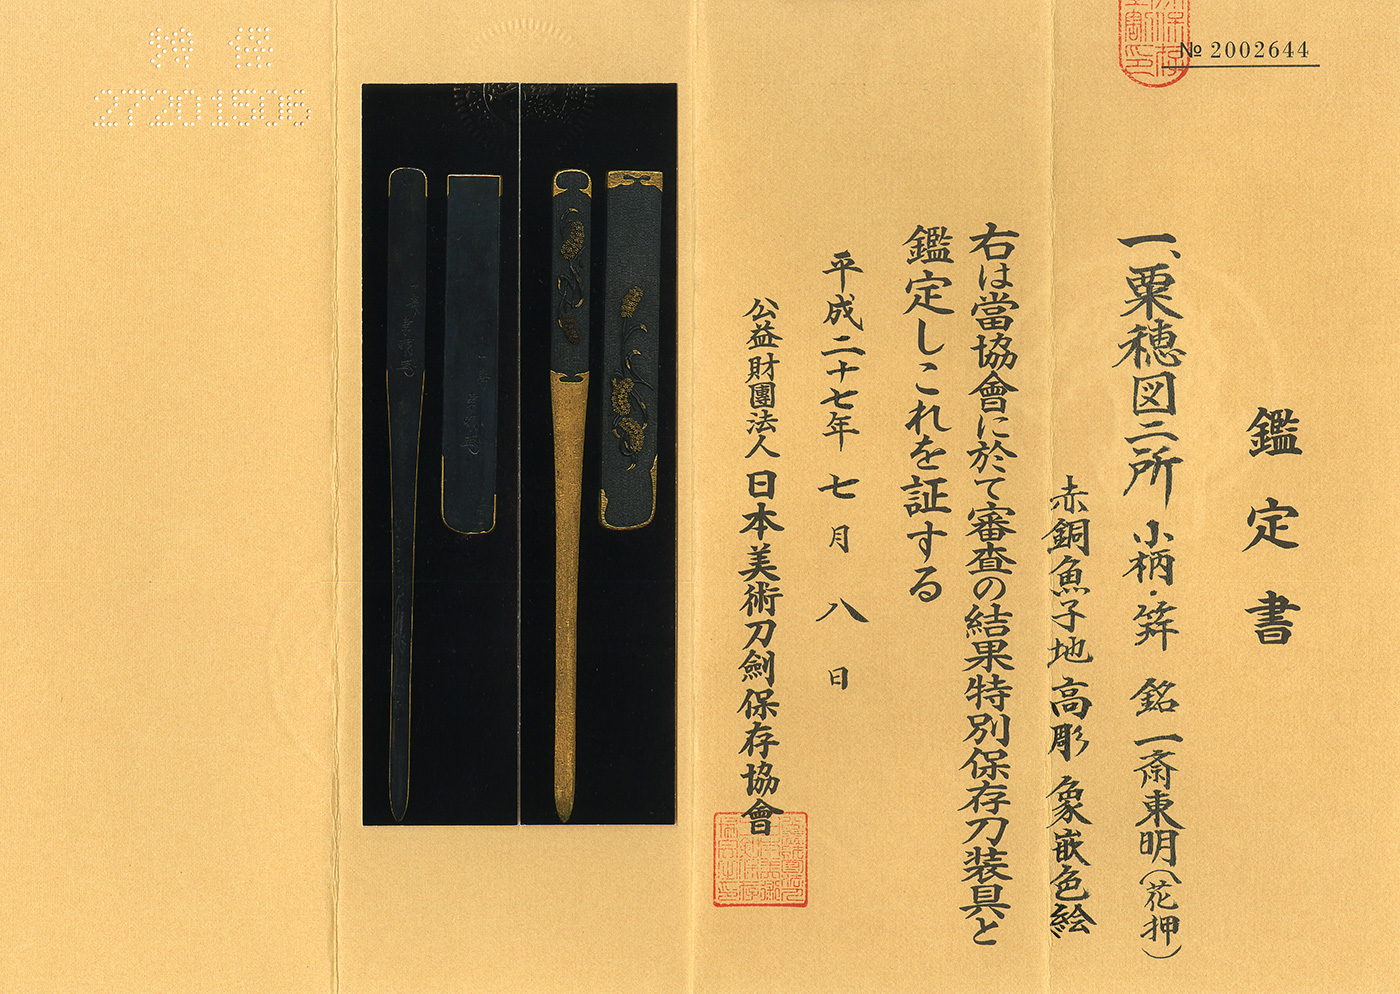 № 2002644
鑑定書
一、粟穂図二所 小柄・笄 銘 一斎東明(花押)
赤銅魚子地 高彫 象嵌色絵
右は當協會に於て審査の結果特別保存刀装具と
鑑定しこれを証する
平成二十七年 七月 八日
公益財團法人 日本美術刀劍保存協會
特保
27201506